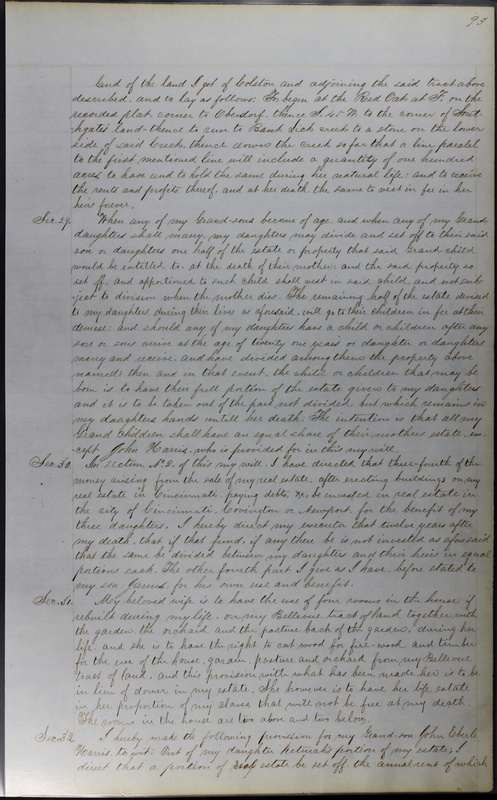 93
land of the land I got of Colston and adjoining the said tract above
described, and to lay as follows: To begin at the Red Oak at F. on the
recorded plat, corner to Obendorf, thence S. 45 W. to the corner of
land thence to run to Bank Lick creek to a stone on the lower
side of said Creek, thence down the creek so far that a line paralel
to the first mentioned line will include a quantity of one hundred
acres to have and to hold the same during her natural life: and to receive
the rents and profits thereof, and at her death the same to vest in fee in her
heirs forever.
Sec. 29. When any of my Grand-sons become of age, and when any of my Grand
daughters shall marry, my daughters may divide and set off to their said
son or daughters one half of the estate or property that said Grand child
would be entitled to, at the death of their mother: and the said property so
set off, and apportioned to such child shall vest in said child, and not sub-
ject to division when the mother dies. The remaining half of the estate devised
to my daughters during their lives as aforesaid, will go to their children in fee at their
demise: and should any of my daughters have a child or children after any
son or sons arrive at the age of twenty one years or daughter or daughters
marry and receive, and have divided among them the property above
named: then and in that event, the child or children that may be
born is to have their full portion of the estate given to my daughters
and it is to be taken out of the part not divided but which remains in
my daughters hands untill her death. The intention is that all my
Grand Children shall have an equal share of their mothers estate, ex-
cept John Harris, who is provided for in this my will.
Sec. 30. In section No 2 of this my will, I have directed that three-fourth of the
money arising from the sale of my real estate, after erecting buildings on my
real estate in Cincinnati, paying debts, &c. be invested in real estate in
the city of Cincinnati, Covington or Newport, for the benefit of my
three daughters. I hereby direct my executor that twelve years after
my death, that if that fund, if any there be is not invested as aforesaid
that the same be divided between my daughters and their heirs in equal
portions each. The other fourth part I give as I have before stated to
my son for his own use and benefit.
Sec. 31. My beloved wife is to have the use of four rooms in the house if
rebuilt during my life, on my Bellevue tract of land together with
the garden, the orchard and the pasture back of the garden, during her
life, and she is to have the right to cut wood for fire-wood and timber
for the use of the house, garden, pasture and orchard from my Bellevue
tract of land, and this provision with what has been made her is to be
in lieu of dower, in my estate. She however is to have her life estate
in her proportion of my slaves that will not be free at my death.
The rooms in the house are two above and two below.
Sec. 32. I hereby make the following provision for my Grand-son John Eberle
Harris to wit: Out of my daughter portion of my estate, I
direct that a portion of estate be set off the annual rent of which